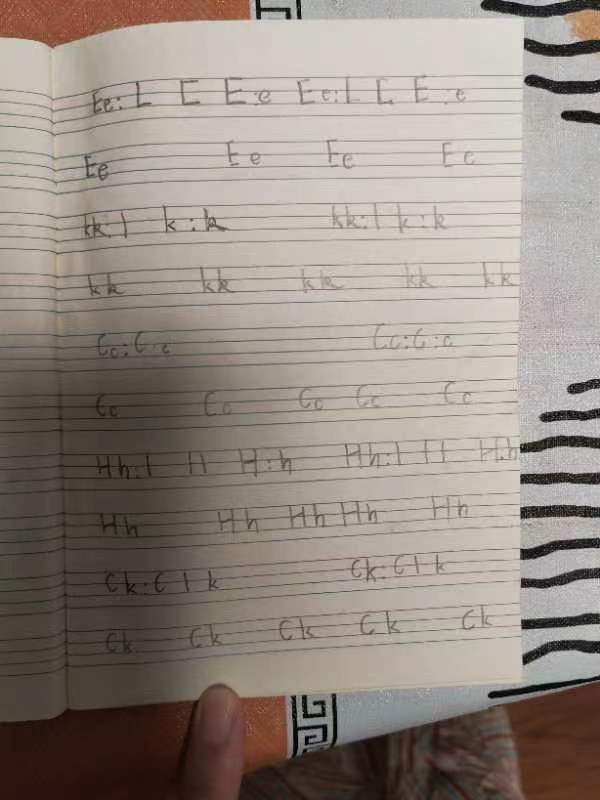 Ee: L E E:e Ee: L E E:e
Ee Ee Ee Ee
kk: l k:k kk: l k:k
kk kk kk kk kk
Cc: C c Cc: C:c
Cc Cc Cc Cc Cc
Hh: l H H:h Hh: l H H:h
Hh Hh Hh Hh Hh
Ck: C l k Ck: C l k
Ck Ck Ck Ck Ck